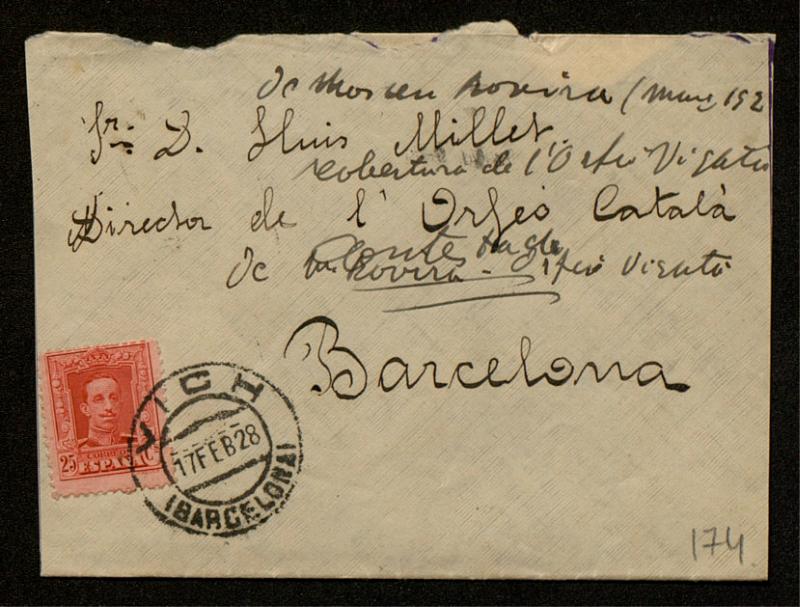 de Mossen Rovira (març 192
Sr. D. Lluis Millet.
cobertura de l'Orfeó Vigatà
Director de l'Orfeó Català
Contestada
de M. Rovira - Orfeó Vigatà
Barcelona
VICH
17 FEB 28
(BARCELONA)
CORREOS
25 ESPAÑA
174